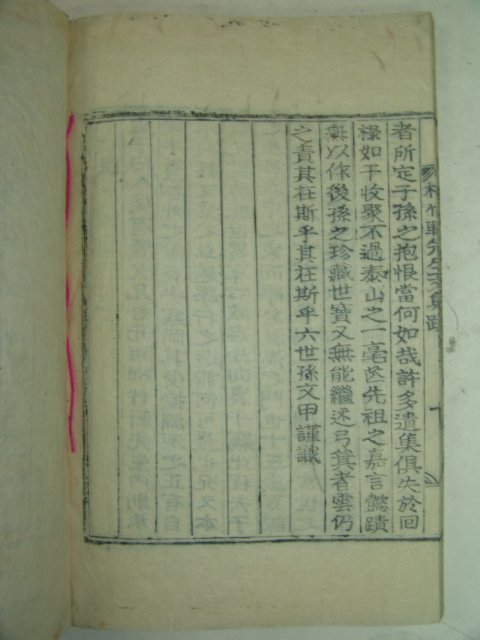 松竹軒先生文集跋
者所定子孫之抱恨當何如哉許多遺集俱失於回
祿如干收聚不過泰山之一毫然先祖之嘉言懿蹟
無以作後孫之珍藏世寶又無能繼述弓箕者雲仍
之責其在斯乎其在斯乎六世孫文甲謹識